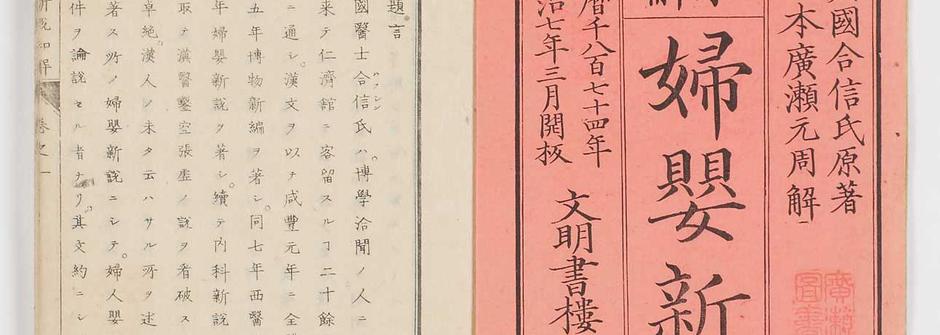 國合信氏原著
本廣瀬元周解
婦嬰新
曆千八百七十四年
治七年三月開板
文明書樓
題言
國醫士合信氏ハ博學洽聞ノ人ニ
来テ仁濟館ニ客留スルヿ二十餘
ニ通シ漢文ヲ以テ咸豐元年ニ全
五年博物新編ヲ著シ同七年西醫
年婦嬰新說ヲ著シ續テ内科新說
取テ漢醫鑿空張虚ノ說ヲ看破ス
卓絶漢人ノ未タ云ハサル所ヲ述
著ス所ノ婦嬰新說ニシテ婦人嬰
件ヲ論說セル者ナリ其文約ニシ